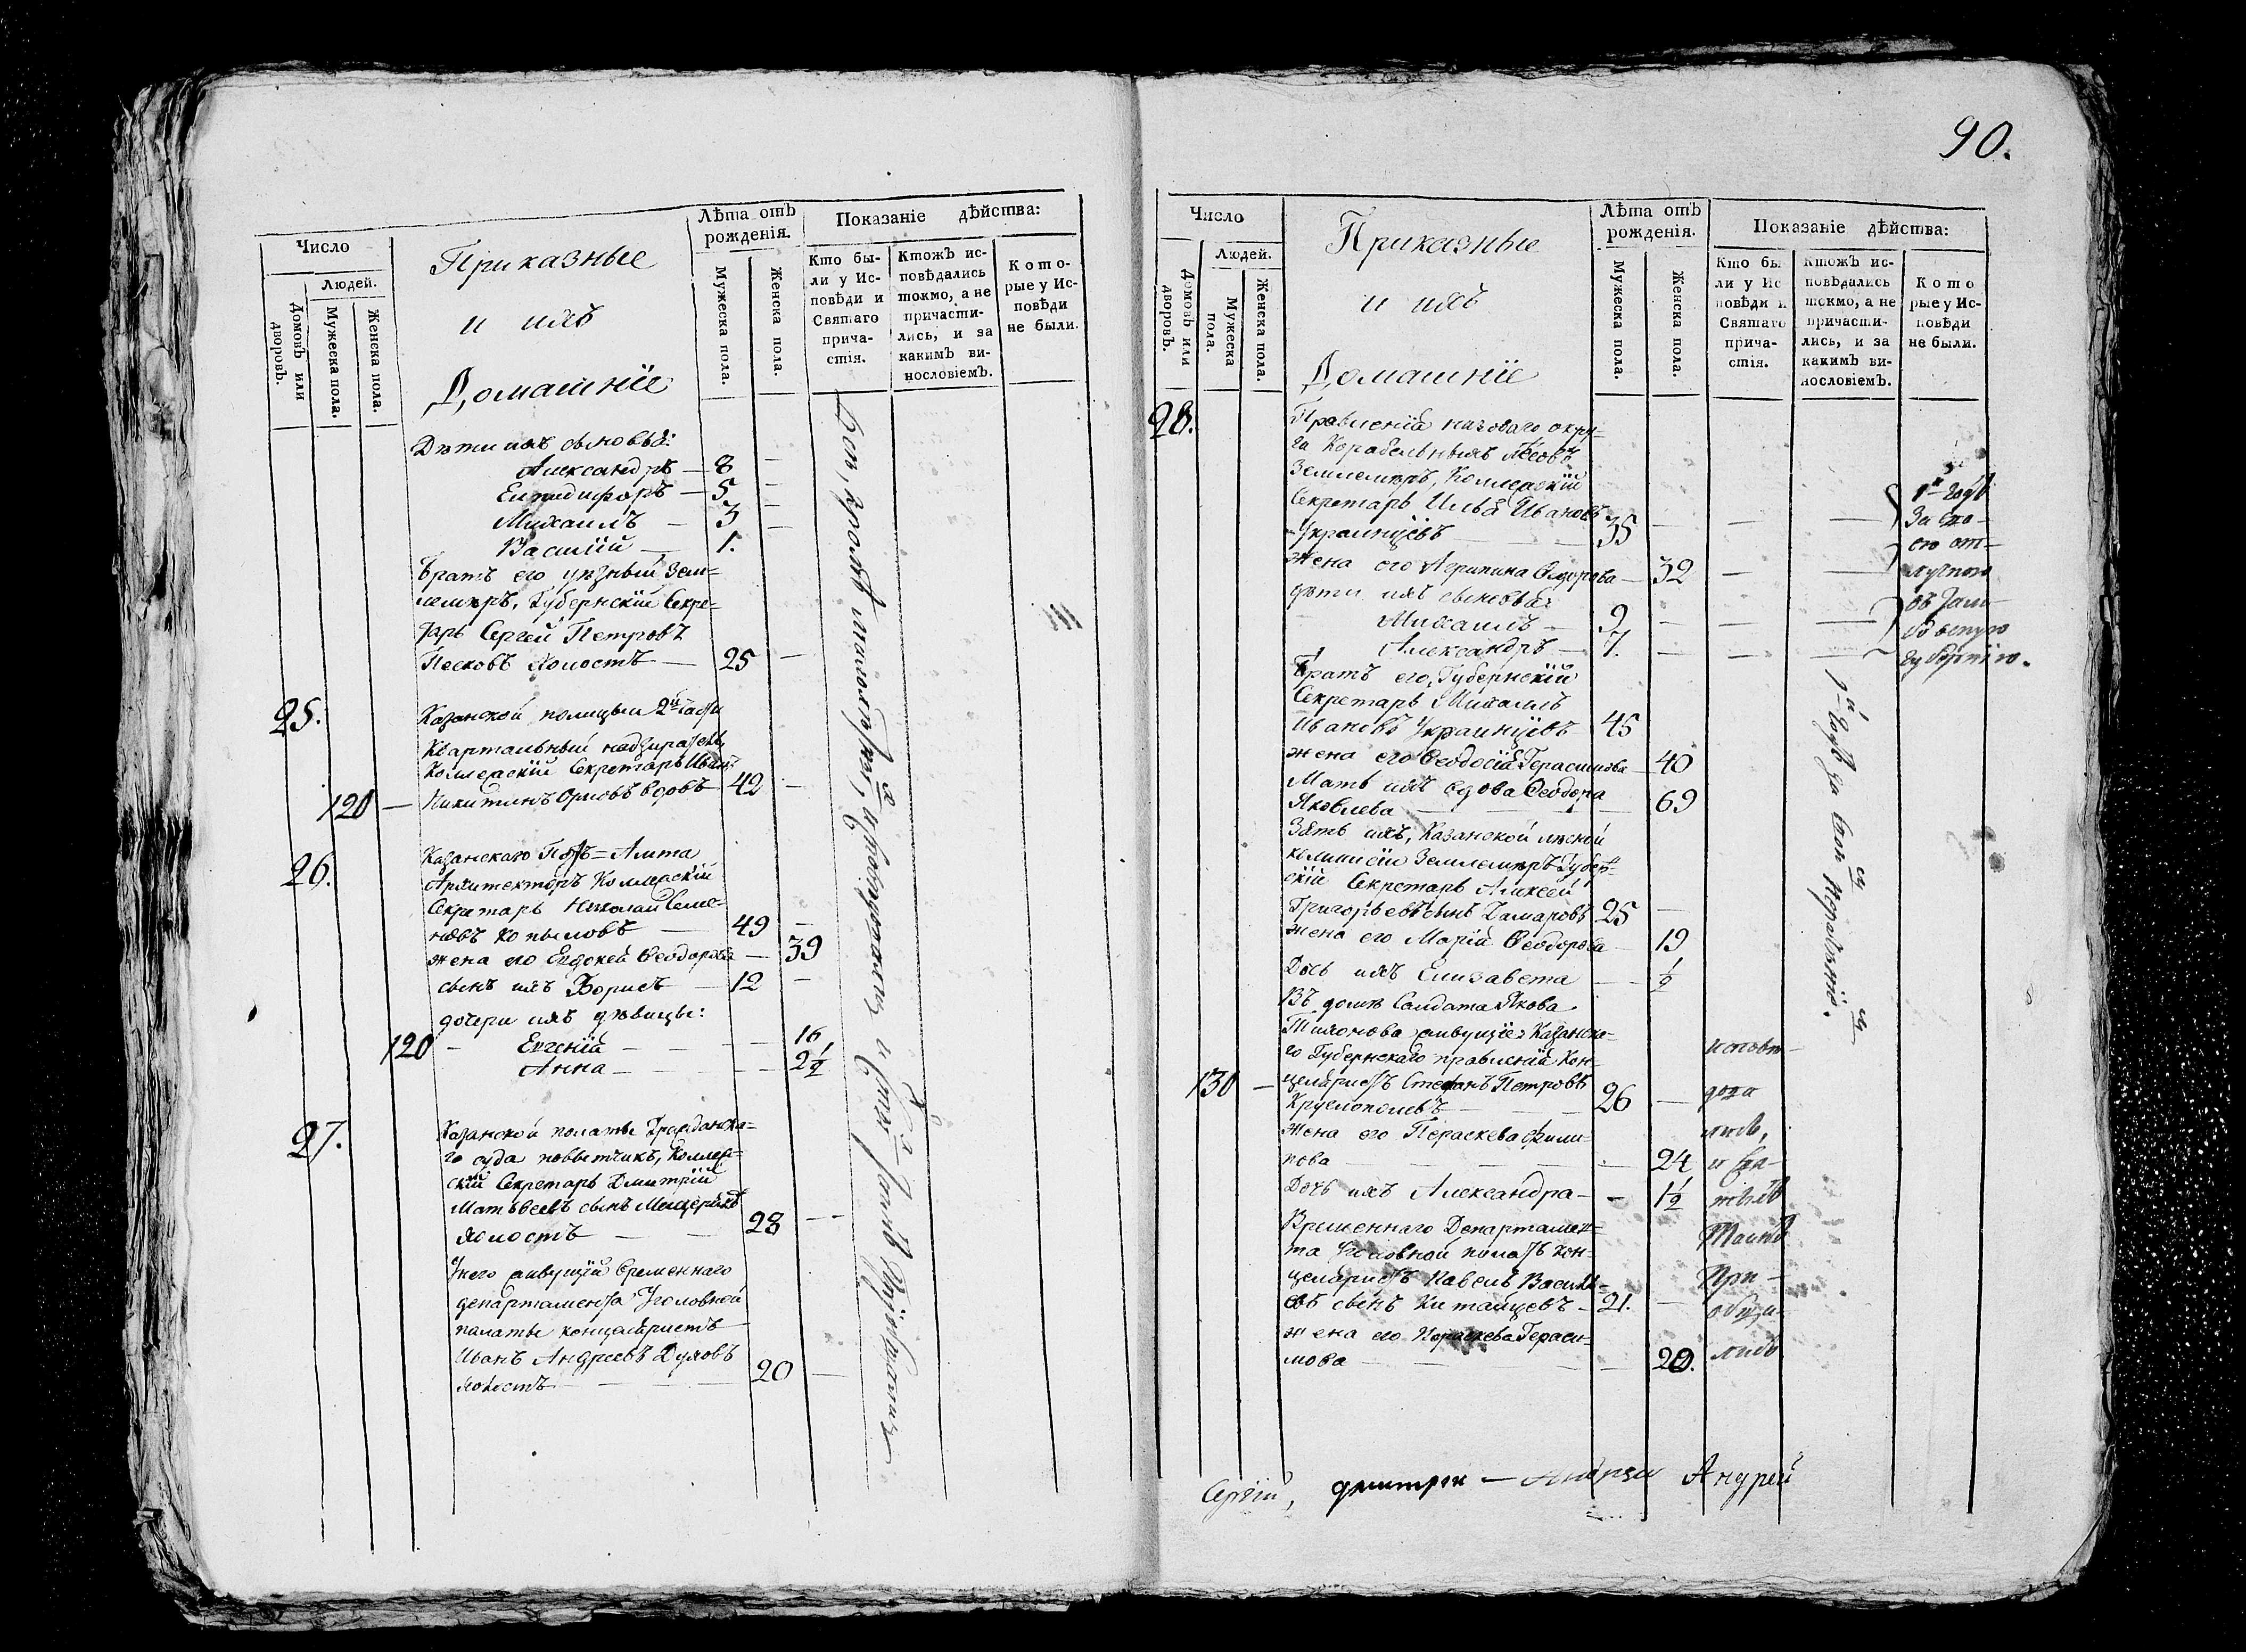 Число
Людей.
Домовъ или дворовъ.
Мужеска пола.
Женска пола.
Приказные
и ихъ
Домашніе
Лѣта отъ рожденія.
Мужеска пола.
Женска пола.
Показаніе дѣйства:
Кто бы-
ли у Ис-
повѣди и
Святаго
прича-
стія.
Ктожъ ис-
повѣдались
токмо, а не
причасти-
лись, и за
какимъ ви-
нословіемъ.
Кото-
рые у Ис-
повѣди
не были.
Дѣти ихъ сыновья:
Александръ — 8 —
Епидифоръ — 5 —
Михаилъ — 3 —
Василій — 1.
Братъ его уѣзный Зем=
лемѣръ, Губернскій Секре=
тарь Сергей Петровъ
Песковъ холостъ — 25 —
25.
Казанской полицыи 2й части
Квартальный надзиратель
Коллежскій Секретарь Иванъ
120 — Никитинъ Орловъ вдовъ 42 —
26.
Казанскаго Почтъ=Амта
Архитекторъ Коллежскій
Секретарь Николай Семе=
новъ Копыловъ — 49 —
жена его Евдокея Ѳеодорова — 39
сынъ ихъ Борисъ — 12 —
дочери ихъ дѣвицы:
120 — Евгенія — — 16
Анна — — 2½
27.
Казанской полаты Гражданска=
го суда повытчикъ, Коллеж=
скій Секретарь Дмитрій
Матвѣевъ сынъ Мещеряковъ
холостъ — — 28 —
У него живущій Временнаго
департамента Уголовной
палаты концеляристъ
Иванъ Андреевъ Духовъ
холостъ — — — 20 —
90.
Число
Людей.
Домовъ или дворовъ.
Мужеска пола.
Женска пола.
Приказные
и ихъ
Домашніе
Лѣта отъ рожденія.
Мужеска пола.
Женска пола.
Показаніе дѣйства:
Кто бы-
ли у Ис-
повѣди и
Святаго
прича-
стія.
Ктожъ ис-
повѣдались
токмо, а не
причасти-
лись, и за
какимъ ви-
нословіемъ.
Кото
рые у Ис-
повѣди
не были.
28.
Правленія низоваго окру=
га Корабельныхъ лѣсовъ
Землемѣръ, Коллежскій
Секретарь Илья Ивановъ
Украинцевъ — — 35 — — —
жена его Агрипина Ѳедорова — 32 — —
дѣти ихъ сыновья:
Михаилъ — 9 — — —
Александръ — 7. — — —
1й годъ
За сво-
ею от-
лучкою
въ Там-
бовскую
губернію.
Братъ его, Губернскій
Секретарь Михаилъ
Ивановъ Украинцевъ 45
жена его Ѳеодосія Герасимова — 40
Мать ихъ вдова Ѳеодора
Яковлева — — 69
Зять ихъ, Казанской лѣсной
комиисіи Землемѣръ Губерн=
скій Секретарь Алексей
Григорьевъ сынъ Комаровъ 25 —
жена его Марія Ѳеодорова — 19
Дочь ихъ Елизавета — — ½
Въ домѣ Солдата Якова
Тихонова живущіе: Казанска=
го Губернскаго правленія Кон=
130 — целяристъ Стефанъ Петровъ 26 —
жена его Параскева Фили=
пова — — — — 24
Дочь ихъ Александра — — 1½
Временнаго Департамен=
та Уголовной полаты кон=
целяристъ Павелъ Василь=
евъ сынъ Китайцевъ — 21. —
жена его Параскева Гераси=
мова — — — 20.
Сергій, димитрей — Андрей Андрей